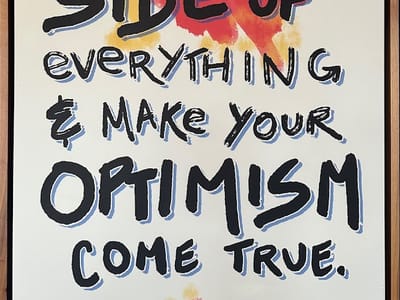 SIDE OF
everyTHING
& MAKe YOUR
OPTIMISM
COME TRUE.